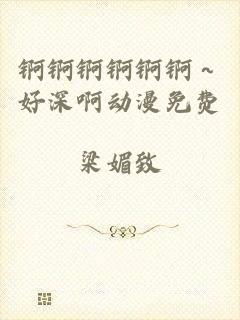 锕锕锕锕锕锕～
好深啊动漫免费
梁媚致